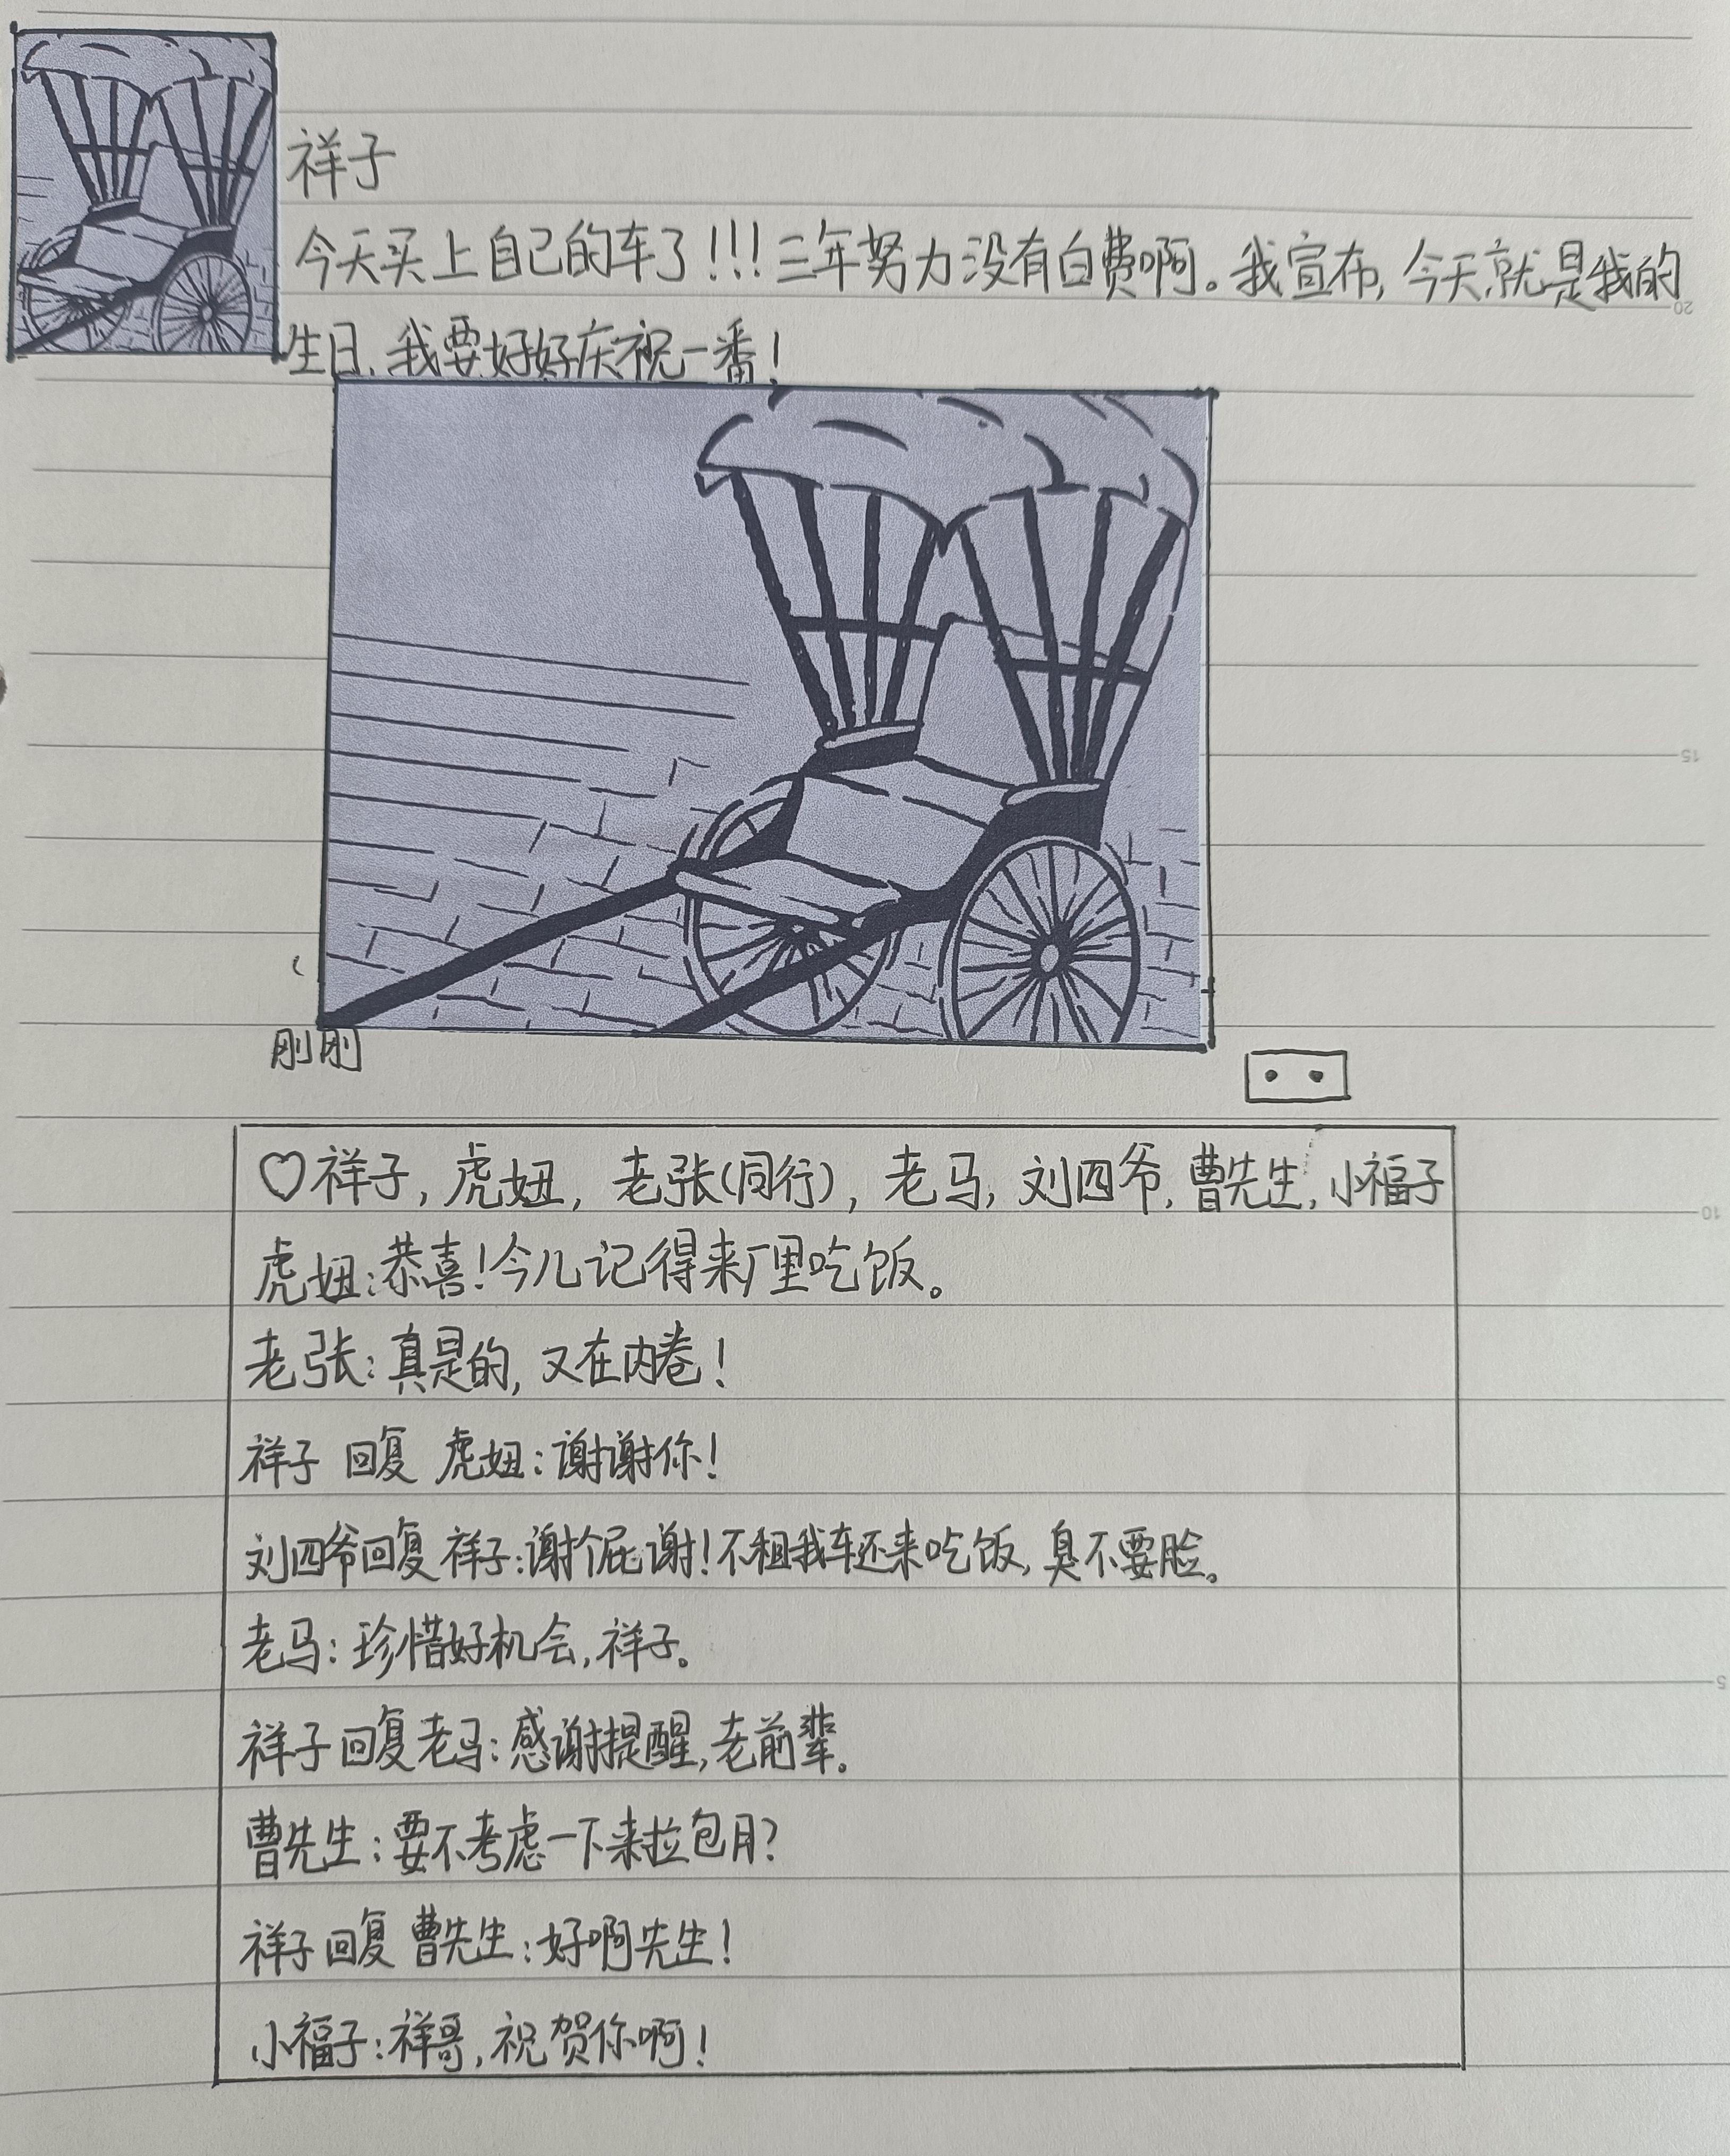 祥子
今天买上自己的车了!!!三年努力没有白费啊。我宣布,今天就是我的
20
生日,我要好好庆祝一番!
15
刚刚
♡祥子,虎妞,老张(同行),老马,刘四爷,曹先生,小福子
10
虎妞:恭喜!今儿记得来厂里吃饭。
老张:真是的,又在内卷!
祥子 回复 虎妞:谢谢你!
刘四爷回复 祥子:谢个屁谢!不租我车还来吃饭,臭不要脸。
老马:珍惜好机会,祥子。
5
祥子回复老马:感谢提醒,老前辈。
曹先生:要不考虑一下来拉包月?
祥子回复 曹先生:好啊先生!
小福子:祥哥,祝贺你啊!